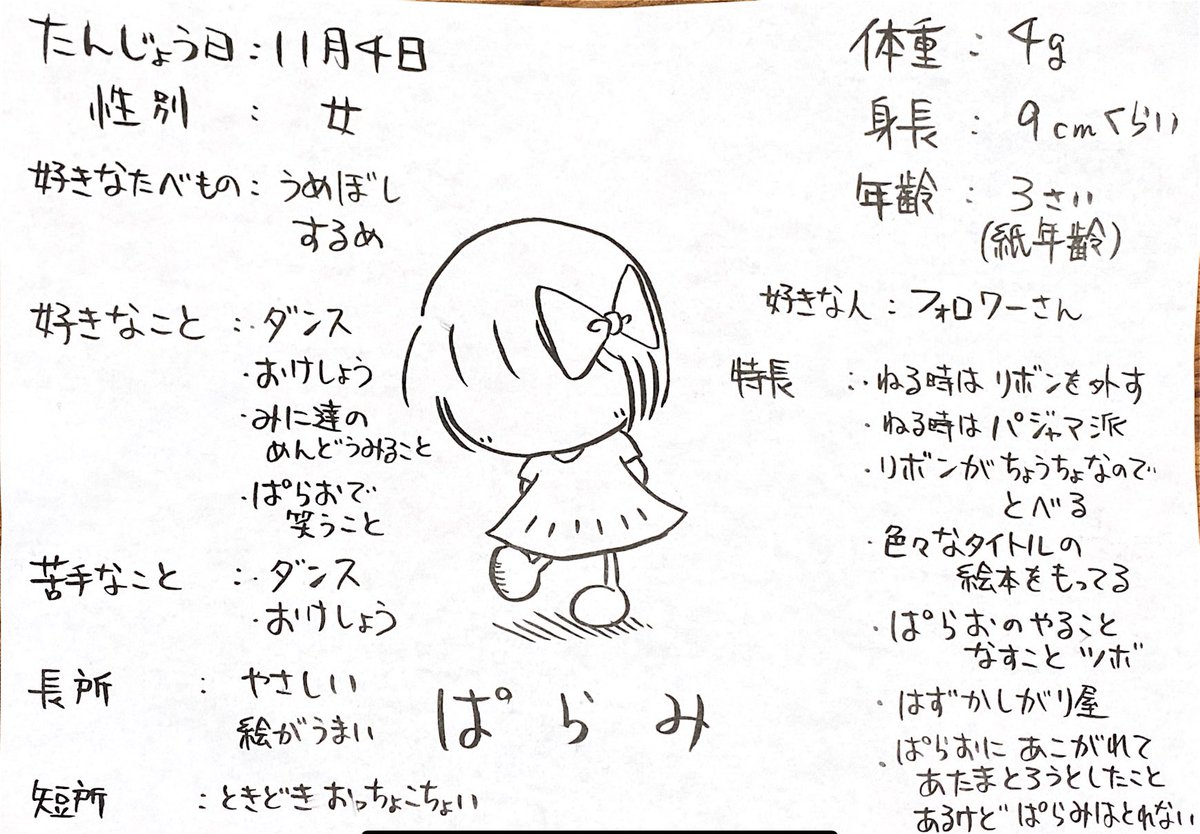 たんじょう日：11月4日
性別：女
好きなたべもの：うめぼし
するめ
好きなこと：・ダンス
・おけしょう
・みに達の
めんどうみること
・ぱらおで
笑うこと
苦手なこと：・ダンス
・おけしょう
長所：やさしい
絵がうまい
短所：ときどきおっちょこちょい
ぱらみ
体重：4g
身長：9cmくらい
年齢：3さい
(紙年齢)
好きな人：フォロワーさん
特長：・ねる時はリボンを外す
・ねる時はパジャマ派
・リボンがちょうちょなので
とべる
・色々なタイトルの
絵本をもってる
・ぱらおのやること
なすことツボ
・はずかしがり屋
・ぱらおにあこがれて
あたまとろうとしたこと
あるけどぱらみはとれない